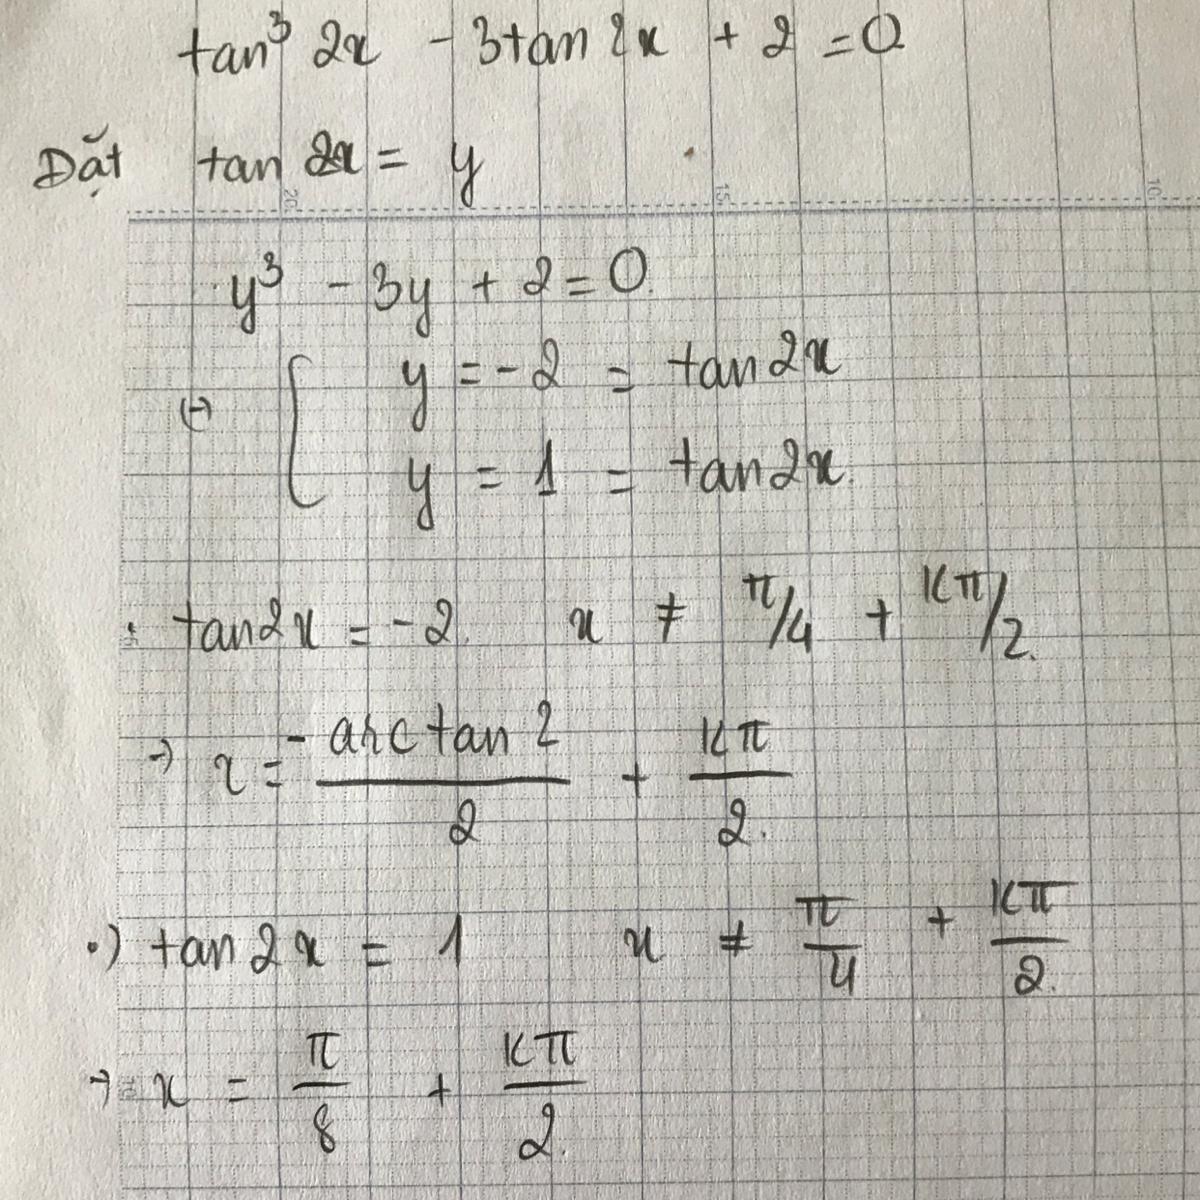 tan³ 2x - 3tan 2x + 2 = 0
Dặt tan 2x = y
20 15 10
y³ - 3y + 2 = 0.
(-) [ y = -2 = tan2x
y = 1 = tan2x.
. tan2x = -2. x ≠ π/4 + kπ/2.
→ x = -arctan 2/2 + kπ/2.
•) tan2x = 1 x ≠ π/4 + kπ/2.
→ x = π/8 + kπ/2.